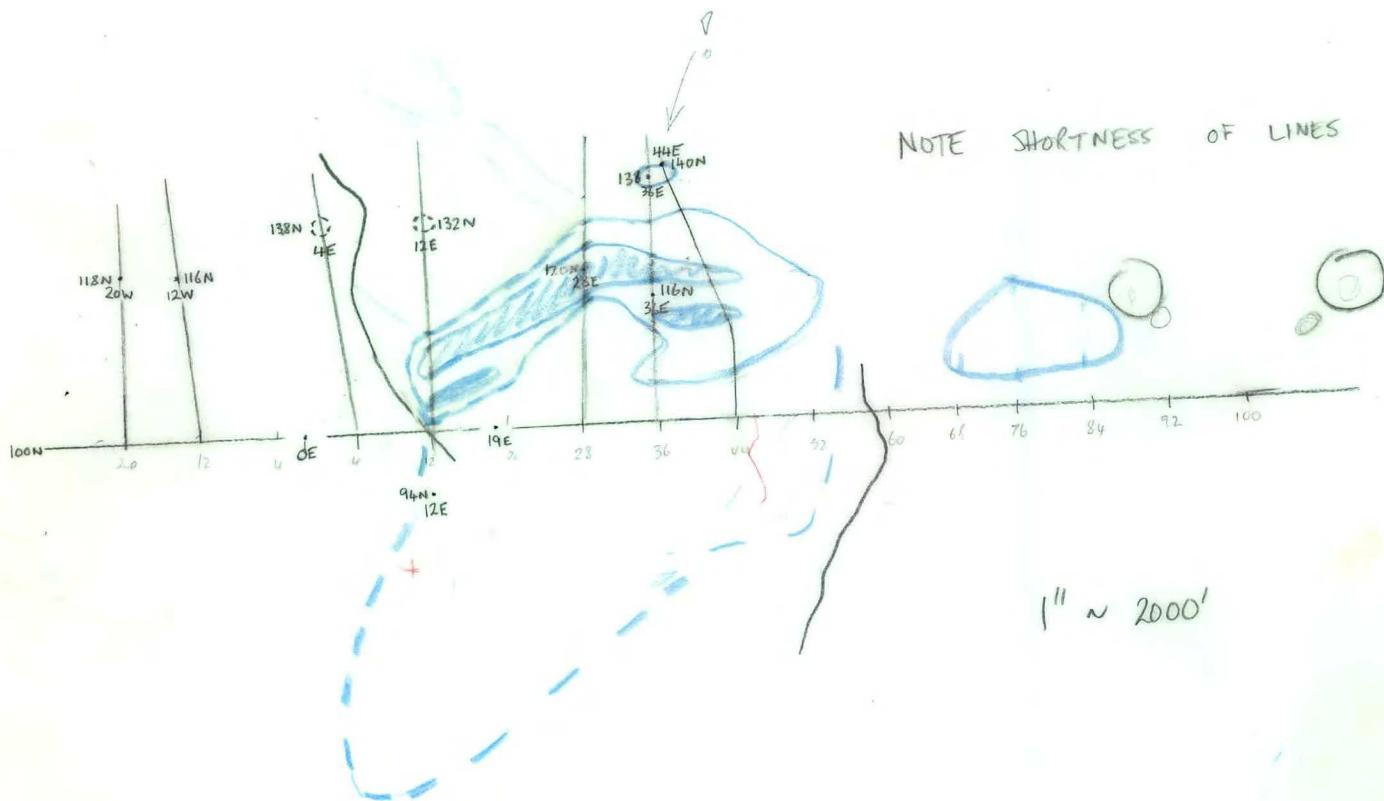 NOTE SHORTNESS OF LINES
44E
140N
138
36E
138N
4E
132N
12E
118N
20W
116N
12W
120N
28E
116N
36E
100N
20
12
4
4
12
19E
28
36
44
52
60
68
76
84
92
100
94N
12E
1" ~ 2000'